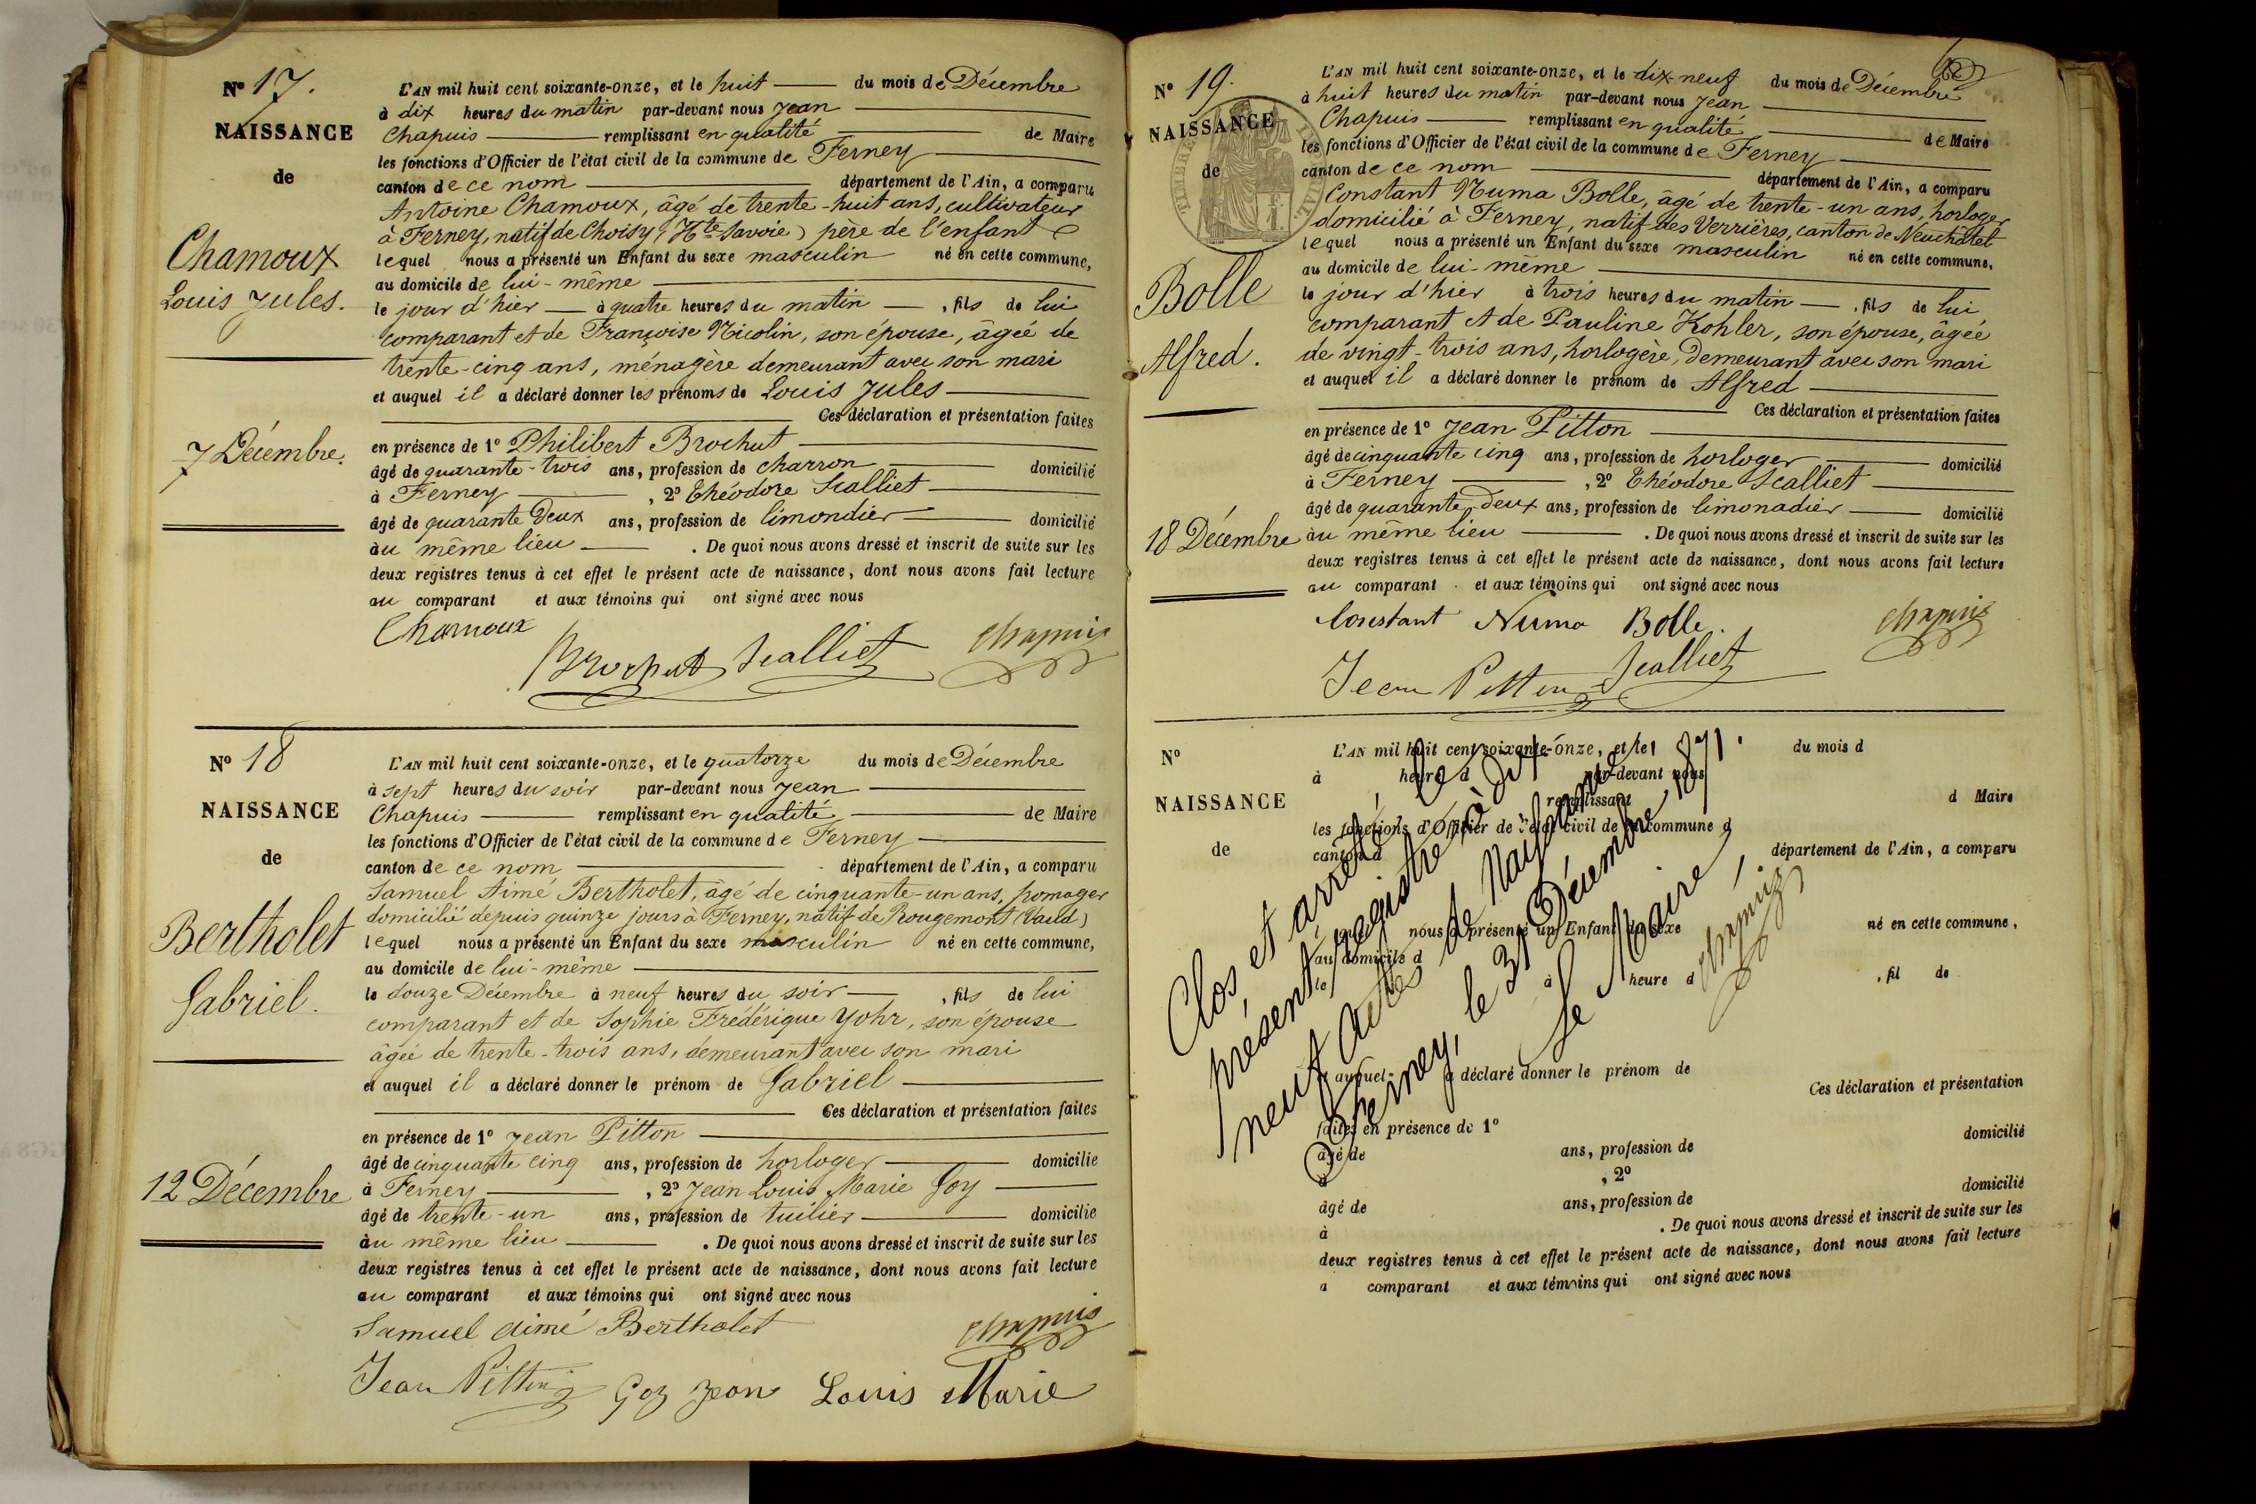 Nº 17.
NAISSANCE
de
Chamoux
Louis Jules.
7 Décembre.
L'AN mil huit cent soixante-onze, et le huit du mois de Décembre
à dix heures du matin par-devant nous Jean
Chapuis remplissant en qualité de Maire
les fonctions d'Officier de l'état civil de la commune de Ferney
canton de ce nom département de l'Ain, a comparu
Antoine Chamoux, âgé de trente-huit ans, cultivateur
à Ferney, natif de Choisy (Hte Savoie) père de l'enfant
lequel nous a présenté un Enfant du sexe masculin né en cette commune,
au domicile de lui-même
le jour d'hier à quatre heures du matin , fils de lui
comparant et de Françoise Nicolin, son épouse, âgée de
trente-cinq ans, ménagère demeurant avec son mari
et auquel il a déclaré donner les prénoms de Louis Jules
Ces déclaration et présentation faites
en présence de 1º Philibert Brochut
âgé de quarante-trois ans, profession de charron domicilié
à Ferney , 2º Théodore Scalliet
âgé de quarante deux ans, profession de limondier domicilié
au même lieu . De quoi nous avons dressé et inscrit de suite sur les
deux registres tenus à cet effet le présent acte de naissance, dont nous avons fait lecture
au comparant et aux témoins qui ont signé avec nous
Chamoux
Brochut Scalliet Chapuis
Nº 18
NAISSANCE
de
Bertholet
Gabriel.
12 Décembre
L'AN mil huit cent soixante-onze, et le quatorze du mois de Décembre
à sept heures du soir par-devant nous Jean
Chapuis remplissant en qualité de Maire
les fonctions d'Officier de l'état civil de la commune de Ferney
canton de ce nom département de l'Ain, a comparu
Samuel Aimé Bertholet, âgé de cinquante-un ans, fromager
domicilié depuis quinze jours à Ferney, natif de Rougemont (Vaud)
lequel nous a présenté un Enfant du sexe masculin né en cette commune,
au domicile de lui-même
le douze Décembre à neuf heures du soir , fils de lui
comparant et de Sophie Frédérique Yohr, son épouse
âgée de trente-trois ans, demeurant avec son mari
et auquel il a déclaré donner le prénom de Gabriel
Ces déclaration et présentation faites
en présence de 1º Jean Pitton
âgé de cinquante cinq ans, profession de horloger domicilié
à Ferney , 2º Jean Louis Marie Goy
âgé de trente-un ans, profession de tuilier domicilié
au même lieu . De quoi nous avons dressé et inscrit de suite sur les
deux registres tenus à cet effet le présent acte de naissance, dont nous avons fait lecture
au comparant et aux témoins qui ont signé avec nous
Samuel Aimé Bertholet Chapuis
Jean Pitton Goy Jean Louis Marie
Nº 19.
NAISSANCE
de
Bolle
Alfred.
18 Décembre
L'AN mil huit cent soixante-onze, et le dix-neuf du mois de Décembre
à huit heures du matin par-devant nous Jean
Chapuis remplissant en qualité de Maire
les fonctions d'Officier de l'état civil de la commune de Ferney
canton de ce nom département de l'Ain, a comparu
Constant Numa Bolle, âgé de trente-un ans, horloger
domicilié à Ferney, natif des Verrières, canton de Neuchâtel
lequel nous a présenté un Enfant du sexe masculin né en cette commune,
au domicile de lui-même
le jour d'hier à trois heures du matin , fils de lui
comparant et de Pauline Kohler, son épouse, âgée
de vingt-trois ans, horlogère, demeurant avec son mari
et auquel il a déclaré donner le prénom de Alfred
Ces déclaration et présentation faites
en présence de 1º Jean Pitton
âgé de cinquante cinq ans, profession de horloger domicilié
à Ferney , 2º Théodore Scalliet
âgé de quarante-deux ans, profession de limonadier domicilié
au même lieu . De quoi nous avons dressé et inscrit de suite sur les
deux registres tenus à cet effet le présent acte de naissance, dont nous avons fait lecture
au comparant et aux témoins qui ont signé avec nous
Constant Numa Bolle. Chapuis
Jean Pitton Scalliet
Nº
NAISSANCE
de
L'AN mil huit cent soixante-onze, et le du mois d
à heure d par-devant nous
remplissant d Maire
les fonctions d'Officier de l'état civil de la commune d
canton d département de l'Ain, a comparu
nous a présenté un Enfant du sexe né en cette commune,
au domicile d
le à heure d , fil de
et auquel a déclaré donner le prénom de
Ces déclaration et présentation
faites en présence de 1º
âgé de ans, profession de domicilié
à , 2º
âgé de ans, profession de domicilié
à . De quoi nous avons dressé et inscrit de suite sur les
deux registres tenus à cet effet le présent acte de naissance, dont nous avons fait lecture
a comparant et aux témoins qui ont signé avec nous
Clos et arrêté le
présent registre à dix
neuf actes de Naissance
Ferney, le 31 Décembre 1871.
Le Maire,
Chapuis